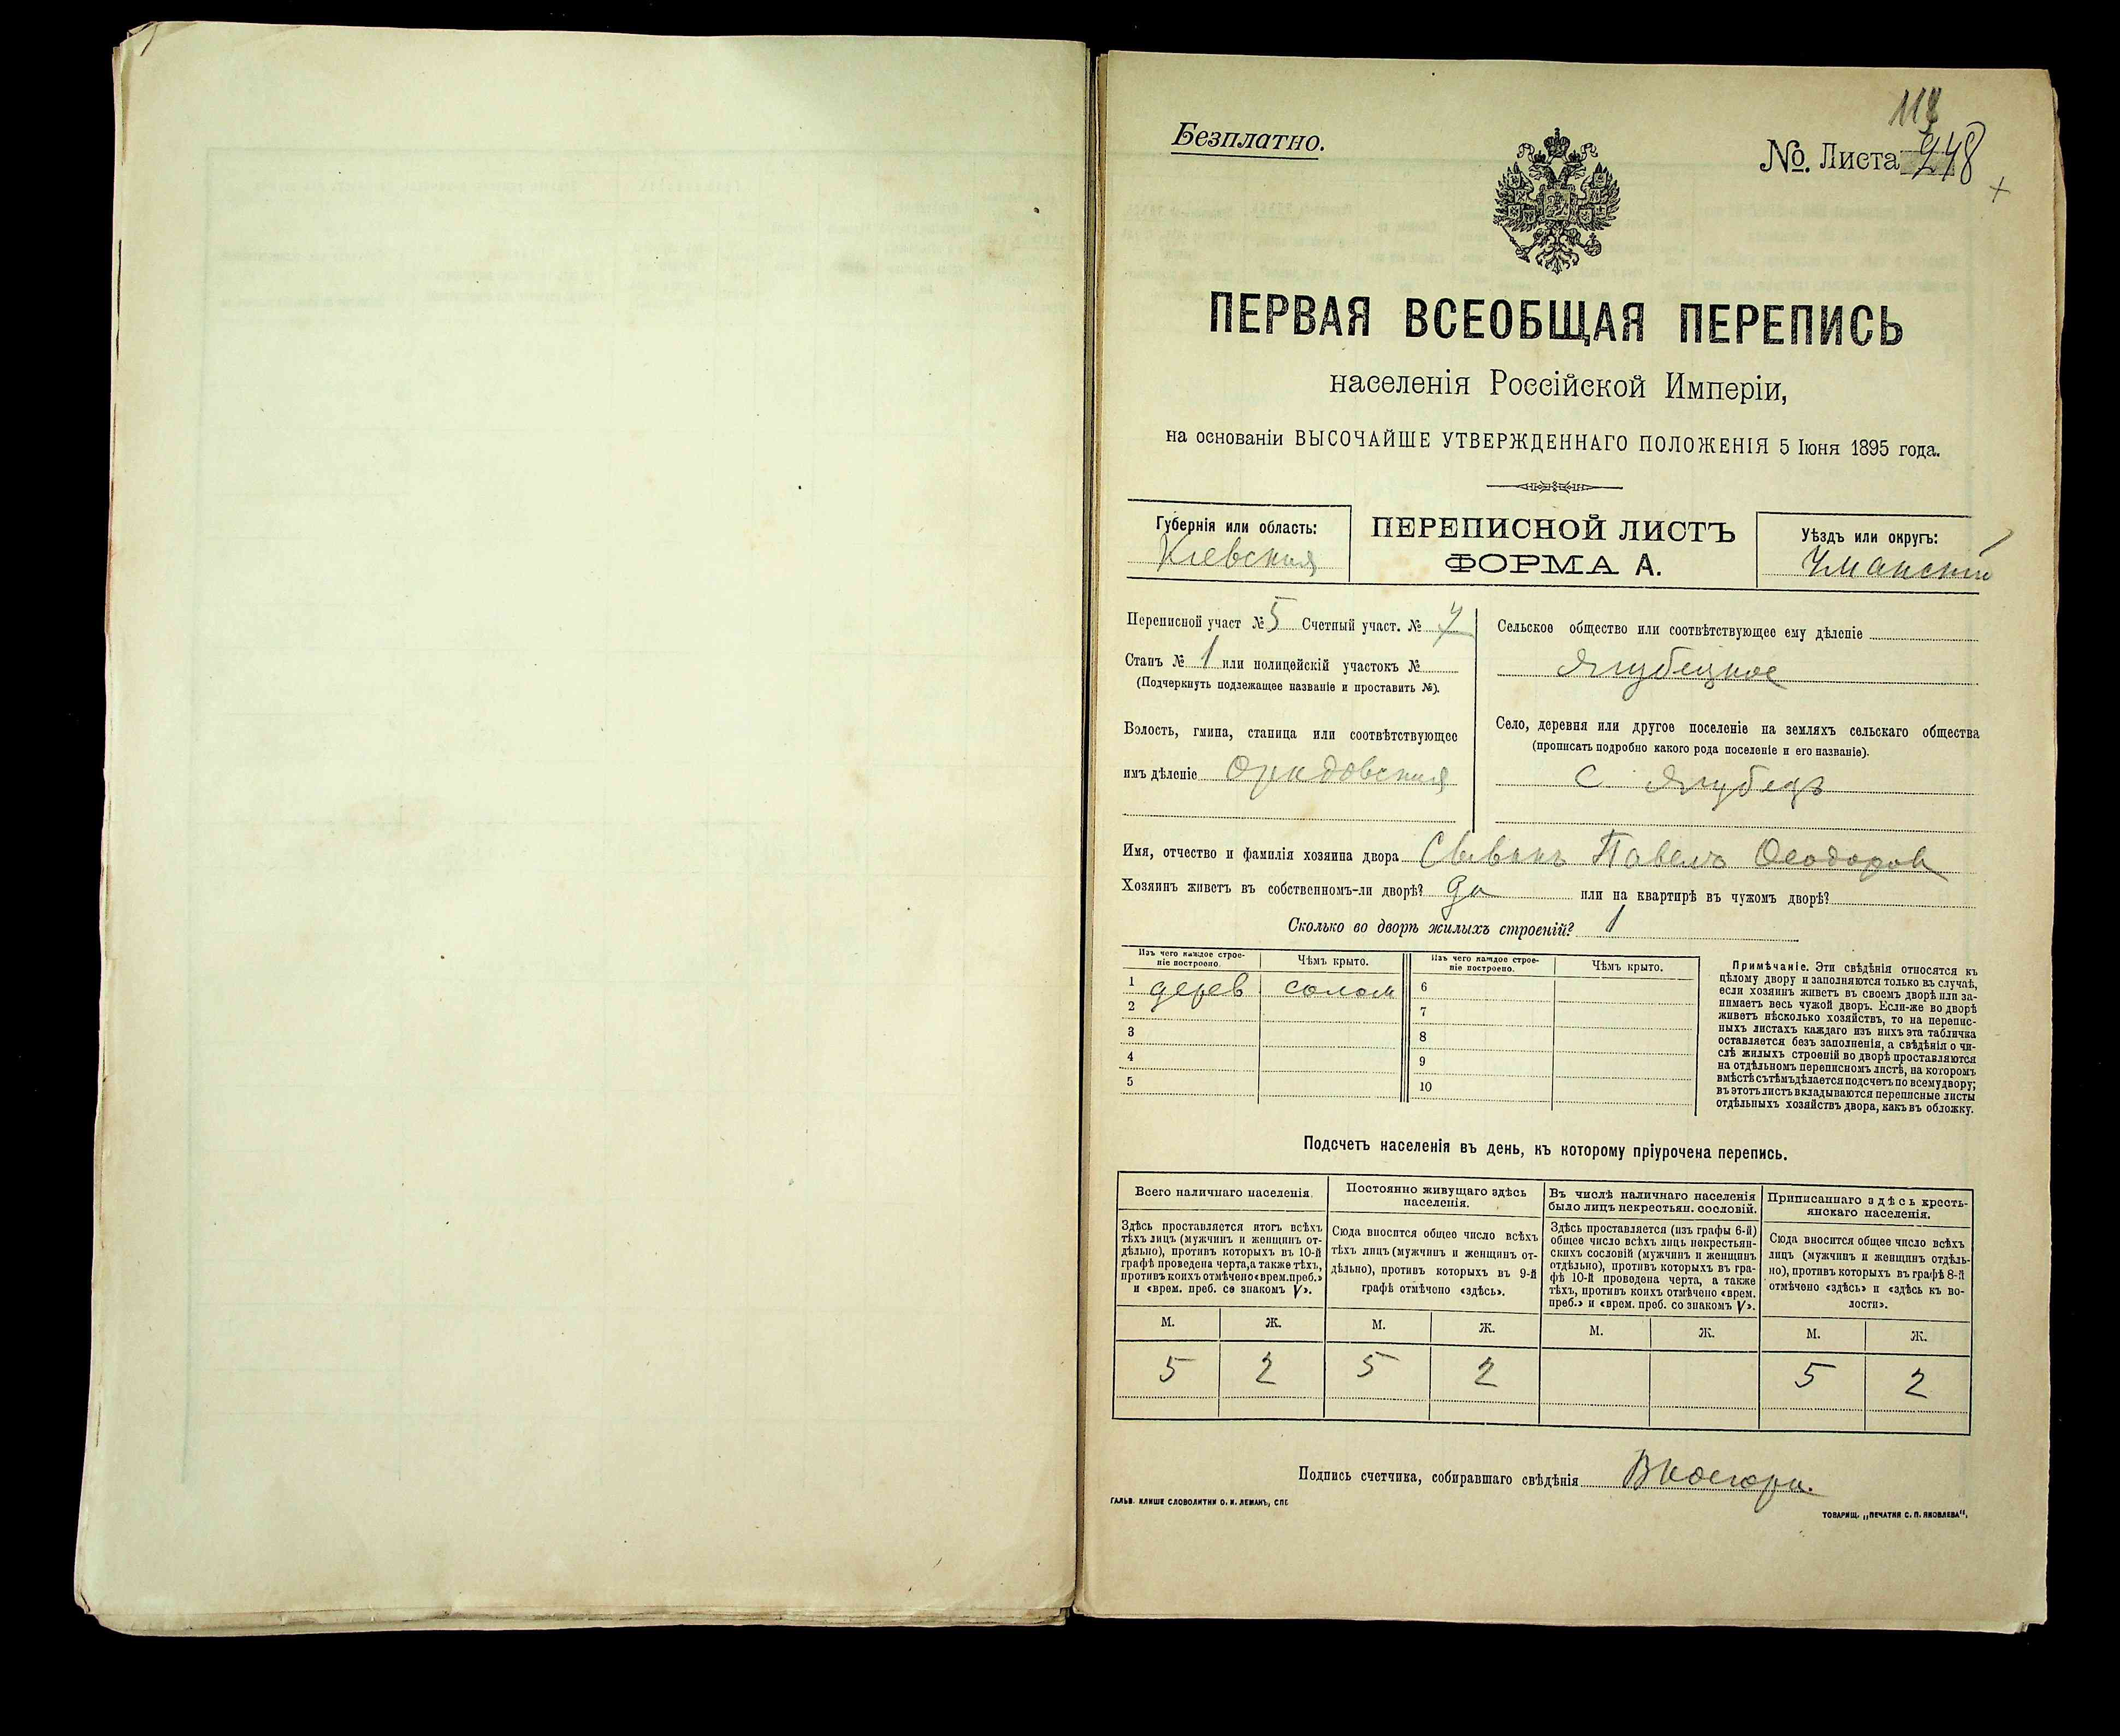 118
Безплатно.
№. Листа 248
+
ПЕРВАЯ ВСЕОБЩАЯ ПЕРЕПИСЬ
населенія Россійской Имперіи,
на основаніи ВЫСОЧАЙШЕ УТВЕРЖДЕННАГО ПОЛОЖЕНІЯ 5 Іюня 1895 года.
Губернія или область:
Кіевская
ПЕРЕПИСНОЙ ЛИСТЪ
ФОРМА А.
Уѣздъ или округъ:
Уманскій
Переписной участ № 5 Счетный участ. № 7
Станъ № 1 или полицейскій участокъ №
(Подчеркнуть подлежащее названіе и проставить №).
Волость, гмина, станица или соотвѣтствующее
имъ дѣленіе
Сельское общество или соотвѣтствующее ему дѣленіе
Ягубецкое
Село, деревня или другое поселеніе на земляхъ сельскаго общества
(прописать подробно какого рода поселеніе и его названіе).
С Ягубецъ
Имя, отчество и фамилія хозяина двора Павелъ Ѳеодоров
Хозяинъ живетъ въ собственномъ-ли дворѣ? да или на квартирѣ въ чужомъ дворѣ?
Сколько во дворѣ жилыхъ строеній? 1
Изъ чего каждое строе-
ніе построено.
Чѣмъ крыто.
Изъ чего каждое строе-
ніе построено.
Чѣмъ крыто.
1 дерев солом 6
2 7
3 8
4 9
5 10
Примѣчаніе. Эти свѣдѣнія относятся къ
цѣлому двору и заполняются только въ случаѣ,
если хозяинъ живетъ въ своемъ дворѣ или за-
нимаетъ весь чужой дворъ. Если-же во дворѣ
живетъ нѣсколько хозяйствъ, то на перепис-
ныхъ листахъ каждаго изъ нихъ эта табличка
оставляется безъ заполненія, а свѣдѣнія о чи-
слѣ жилыхъ строеній во дворѣ проставляются
на отдѣльномъ переписномъ листѣ, на которомъ
вмѣстѣ съ тѣмъ дѣлается подсчетъ по всему двору;
въ этотъ листъ вкладываются переписные листы
отдѣльныхъ хозяйствъ двора, какъ въ обложку.
Подсчетъ населенія въ день, къ которому пріурочена перепись.
Всего наличнаго населенія.
Здѣсь проставляется итогъ всѣхъ
тѣхъ лицъ (мужчинъ и женщинъ от-
дѣльно), противъ которыхъ въ 10-й
графѣ проведена черта, а также тѣхъ,
противъ коихъ отмѣчено «врем. преб.»
и «врем. преб. со знакомъ V».
Постоянно живущаго здѣсь
населенія.
Сюда вносится общее число всѣхъ
тѣхъ лицъ (мужчинъ и женщинъ от-
дѣльно), противъ которыхъ въ 9-й
графѣ отмѣчено «здѣсь».
Въ числѣ наличнаго населенія
было лицъ некрестьян. сословій.
Здѣсь проставляется (изъ графы 6-й)
общее число всѣхъ лицъ некрестьян-
скихъ сословій (мужчинъ и женщинъ
отдѣльно), противъ которыхъ въ гра-
фѣ 10-й проведена черта, а также
тѣхъ, противъ коихъ отмѣчено «врем.
преб.» и «врем. преб. со знакомъ V».
Приписаннаго здѣсь кресть-
янскаго населенія.
Сюда вносится общее число всѣхъ
лицъ (мужчинъ и женщинъ отдѣль-
но), противъ которыхъ въ графѣ 8-й
отмѣчено «здѣсь» и «здѣсь къ во-
лости».
М. Ж. М. Ж. М. Ж. М. Ж.
5 2 5 2 5 2
Подпись счетчика, собиравшаго свѣдѣнія
ГАЛЬВ. КЛИШЕ СЛОВОЛИТНИ О. И. ЛЕМАНЪ, СПБ
ТОВАРИЩ. „ПЕЧАТНЯ С. П. ЯКОВЛЕВА“.